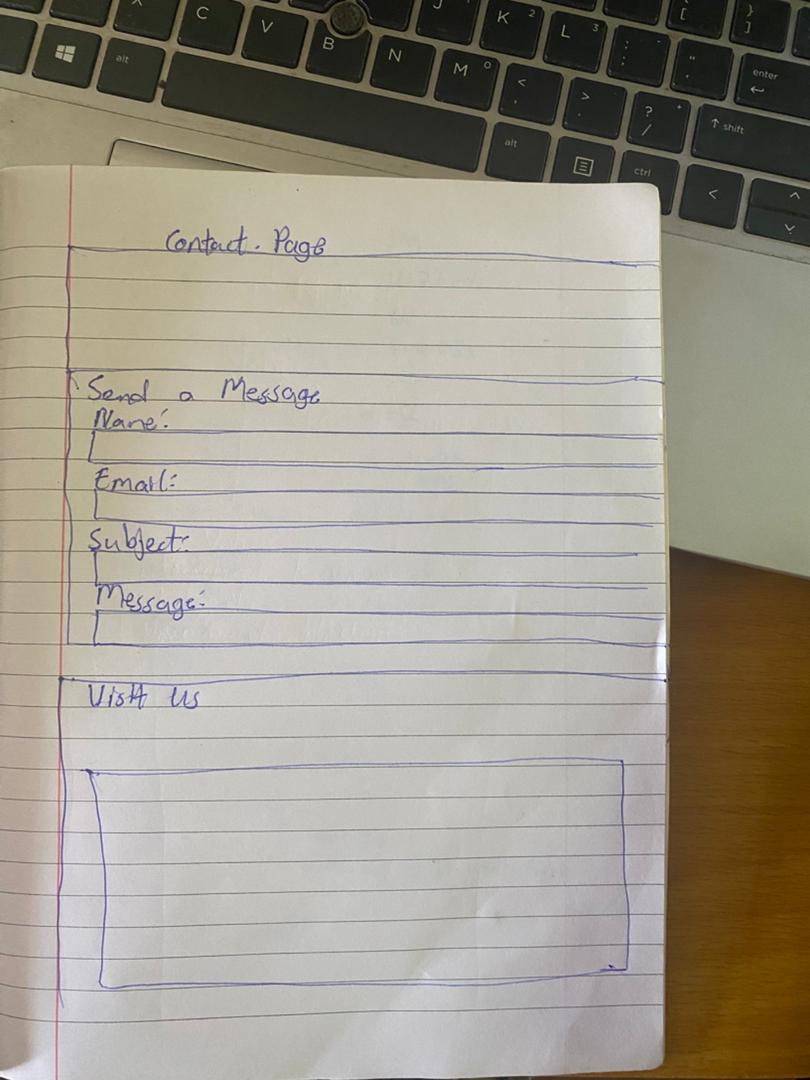 C
V
B
N
M
J
K 2
L 3
alt
enter
? +
/
shift
alt
ctrl
Contact. Page
Send a Message
Name:
Email:
Subject:
Message:
Visit us